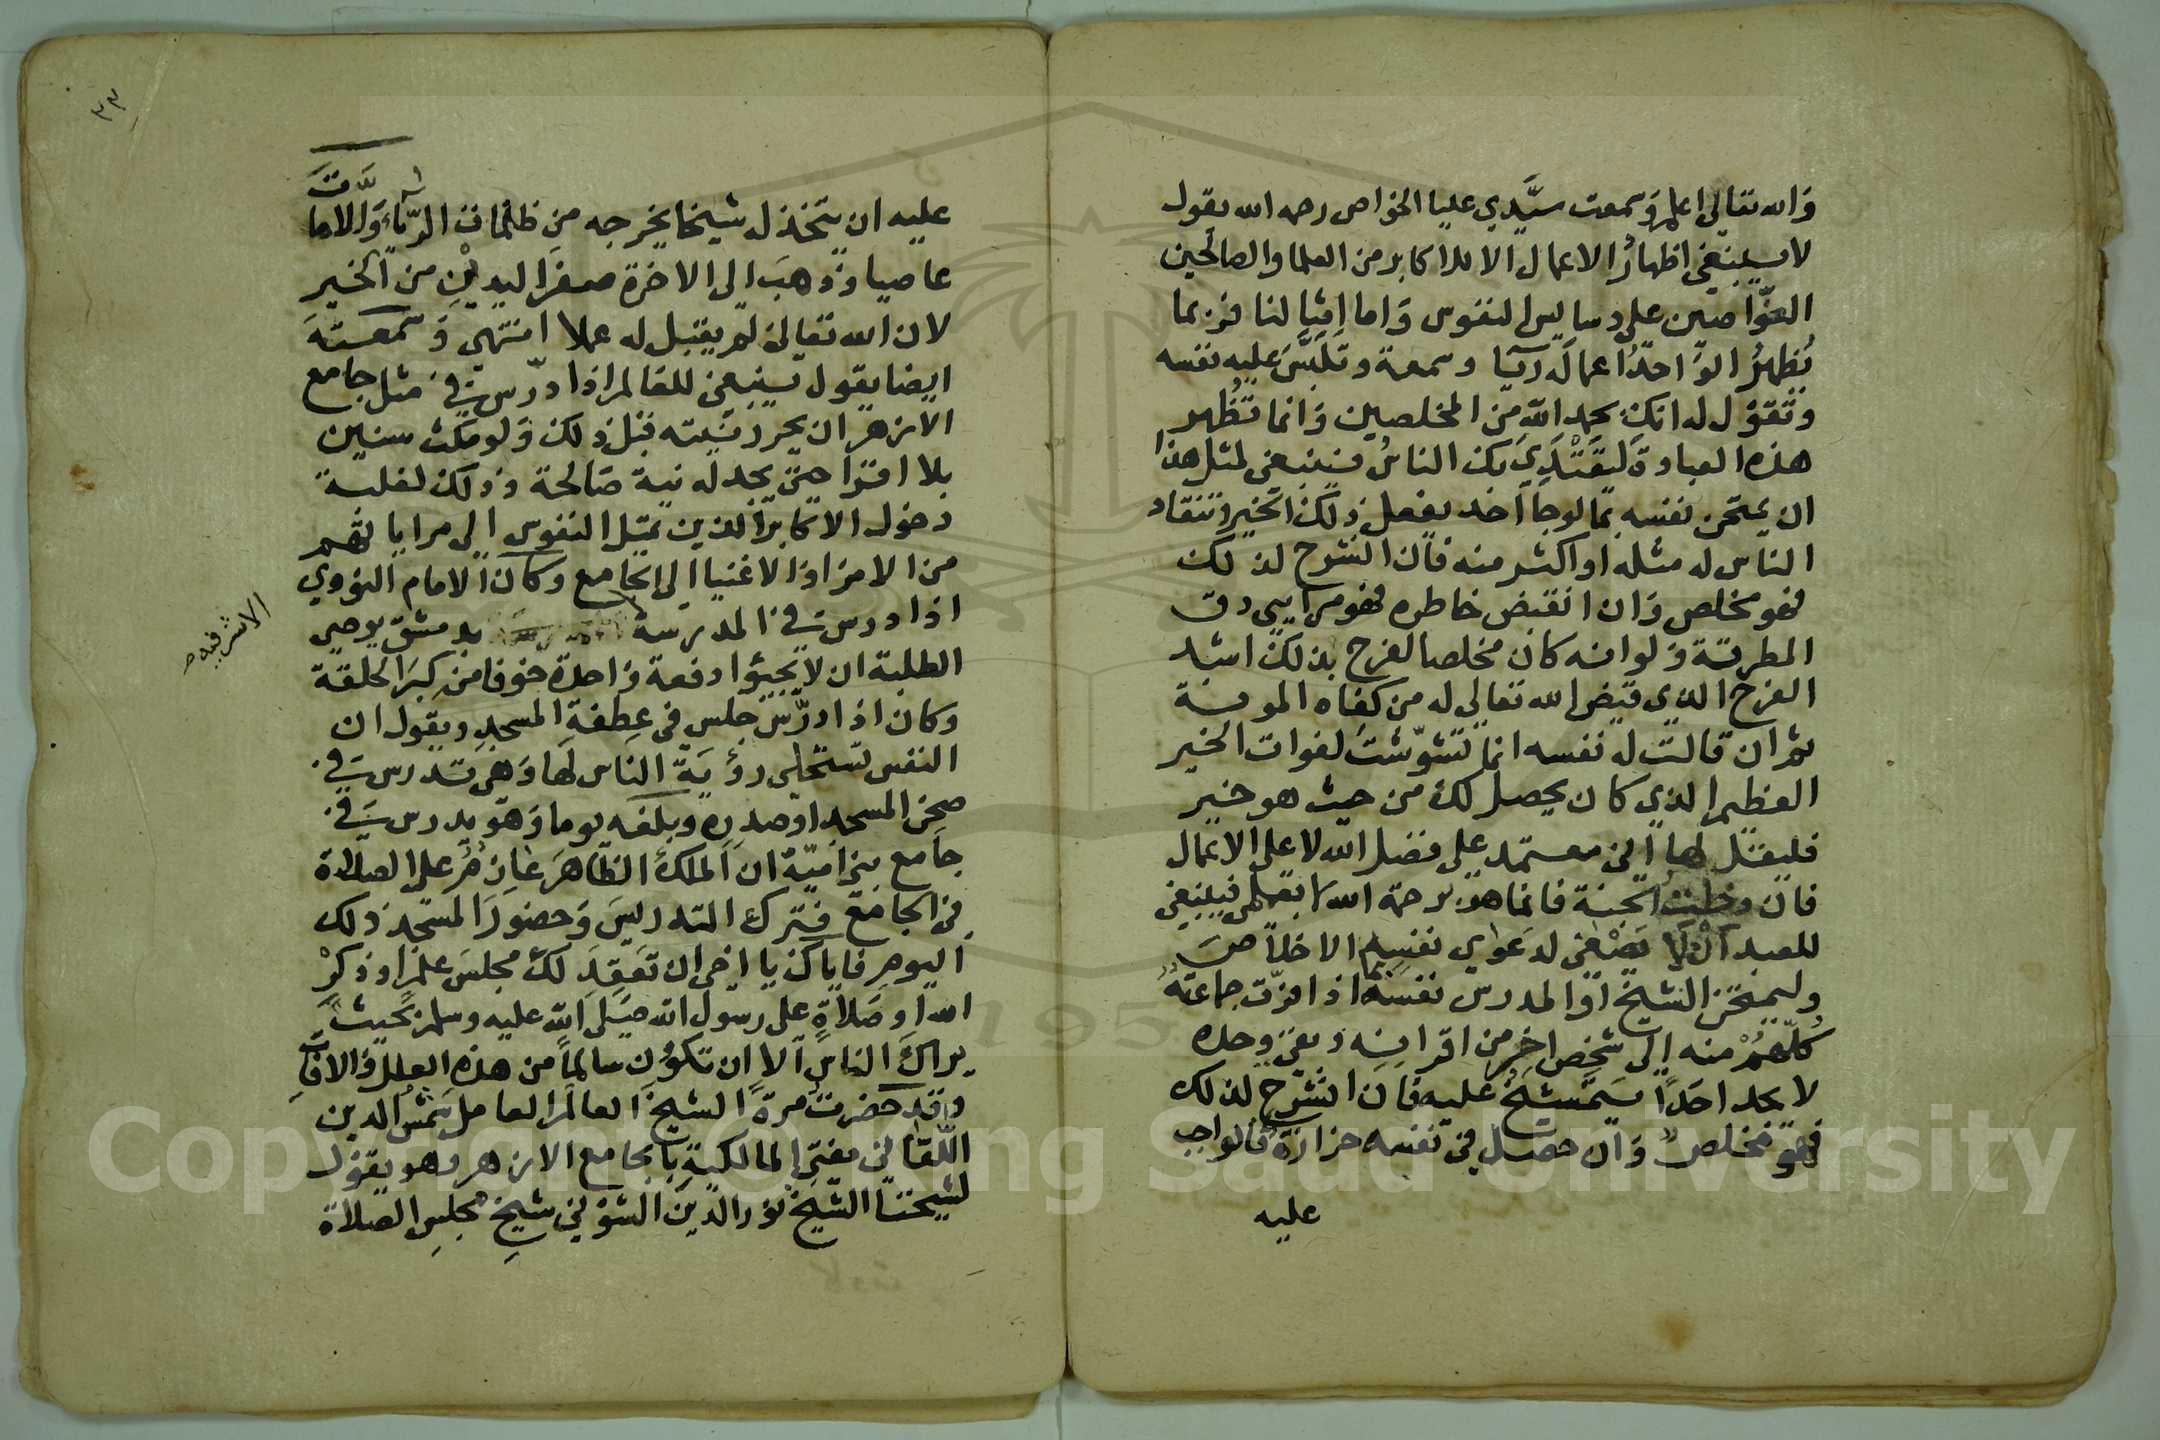 والله تعالى اعلم وسمعت سيدي عليا الخواص رحمه الله يقول
لا ينبغي اظهار الاعمال الا للاكابر من العلما والصالحين
الغواصين على دسايس النفوس واما امثالنا فربما
يظهر الواحد اعماله ريا وسمعة وتلبس عليه نفسه
وتقول له انك بحمد الله من المخلصين وانما تظهر
هذه العبادة ليقتدي بك الناس فينبغي لمثل هذا
ان يمتحن نفسه بما لو جا احد يفعل ذلك الخير وتنقاد
الناس له مثله او اكثر منه فان انشرح لذلك
فهو مخلص وان انقبض خاطره فهو مرايي دق
المطرقة ولو انه كان مخلصا لفرح بذلك اشد
الفرح الذي قيض الله تعالى له من كفاه المونة
ثم ان قالت له نفسه انما تشوشت لفوات الخير
العظيم الذي كان يحصل لك من حيث هو خير
فليقل لها اني معتمد على فضل الله لا على الاعمال
فان دخلت الجنة فانما هو برحمة الله لا بعملي فينبغي
للعبد ان لا يصغى لدعواي نفسه الاخلاص
وليمتحن الشيخ او المدرس نفسه بما اذا فرت جماعته
كلهم منه الى شخص اخر من اقرانه وبقي وحده
لا يجد احدا يتمشيخ عليه فان انشرح لذلك
فهو مخلص وان حصل في نفسه حزازة فالواجب
عليه
٣٣
عليه ان يتخذ له شيخا يخرجه من ظلمات الريا والا مات
عاصيا وذهب الى الاخرة صفر اليدين من الخير
لان الله تعالى لم يقبل له عملا انتهى وسمعته
ايضا يقول ينبغي للعالم اذا درس في مثل جامع
الازهر ان يحرر نيته قبل ذلك ولو مكث سنين
بلا اقرا حتى يجد له نية صالحة وذلك لغلبة
دخول الاكابر الذين تميل النفوس الى مراياتهم
من الامرا والاغنيا الى الجامع وكان الامام النووي
اذا درس في المدرسة بدمشق يوصي
الاشرفيه
الطلبة ان لا يجيؤا دفعة واحدة خوفا من كبر الحلقة
وكان اذا درس جلس في عطفة المسجد ويقول ان
النفس تستحلي رؤية الناس لها وهي تدرس في
صحن المسجد او صدره وبلغه يوما وهو يدرس في
جامع بني امية ان الملك الظاهر عازم على الصلاة
في الجامع فترك التدريس وحضور المسجد ذلك
اليوم فاياك يا اخي ان تعقد لك مجلس علم او ذكر
الله او صلاة على رسول الله صلى الله عليه وسلم بحيث
يراك الناس الا ان تكون سالما من هذه العلل والافات
وقد حضرت مرة الشيخ العالم العامل شمس الدين
اللقاني مفتي المالكية بالجامع الازهر وهو يقول
لشيخنا الشيخ نور الدين الشوني شيخ مجلس الصلاة
Copyright © King Saud University
195